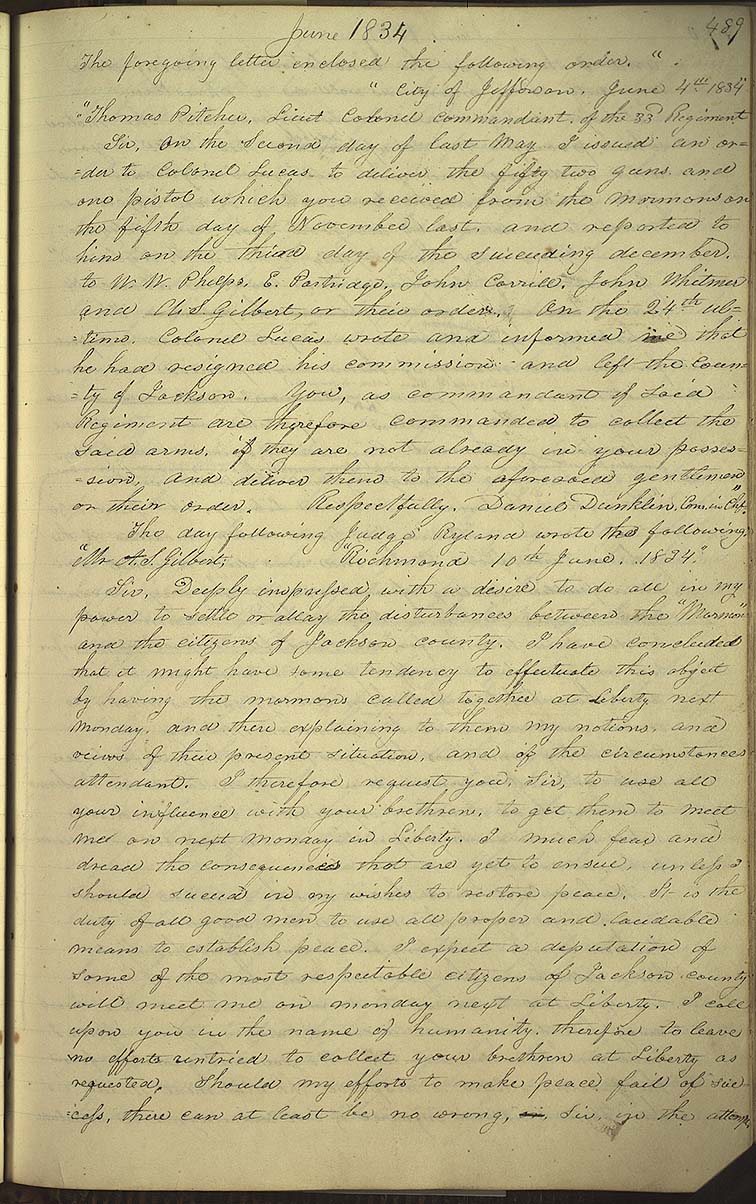 June 1834. 489
The foregoing letter enclosed the following order. "
"City of Jefferson. June 4th 1834
"Thomas Pitcher, Lieut Colonel commandant. of the 33d Regiment
Sir, On the Second day of last May I issued an or=
=der to Colonel Lucas to deliver the fifty two guns and
one pistol which you received from the Mormons on
the fifth day of November last. and reported to
him on the third day of the succeeding december.
to W. W. Phelps. E. Partridge. John Corrill. John Whitmer
and A. S. Gilbert, or their order. On the 24th ul=
=timo. Colonel Lucas wrote and informed me that
he had resigned his commission and left the Coun=
=ty of Jackson. You, as commandant of Said
Regiment are therefore commanded to collect the
said arms, if they are not already in your posses=
=sion, and deliver them to the aforesaid gentlemen
or their order. Respectfully. Daniel Dunklin, Com. in Chf."
The day following Judge Ryland wrote the following;
"Mr A. S. Gilbert; "Richmond 10th June. 1834."
Sir, Deeply impressed with a desire to do all in my
power to settle or allay the disturbances between the "Mormons"
and the citizens of Jackson county. I have concluded
that it might have some tendency to effectuate this object
by having the mormons called together at Liberty next
Monday. and there explaining to them my notions. and
veiws of their present situation, and of the circumstances
attendant. I therefore request you, Sir, to use all
your influence with your brethren, to get them to meet
me on next Monday in Liberty. I much fear and
dread the consequences that are yet to ensue, unless I
should succeed in my wishes to restore peace. It is the
duty of all good men to use all proper and laudable
means to establish peace. I expect a deputation of
some of the most respectable citizens of Jackson county
will meet me on monday next at Liberty. I call
upon you in the name of humanity. therefore to leave
no efforts untried to collect your brethren at Liberty as
requested. Should my efforts to make peace fail of suc=
=cess, there can at least be no wrong, Sir, in the attempt,